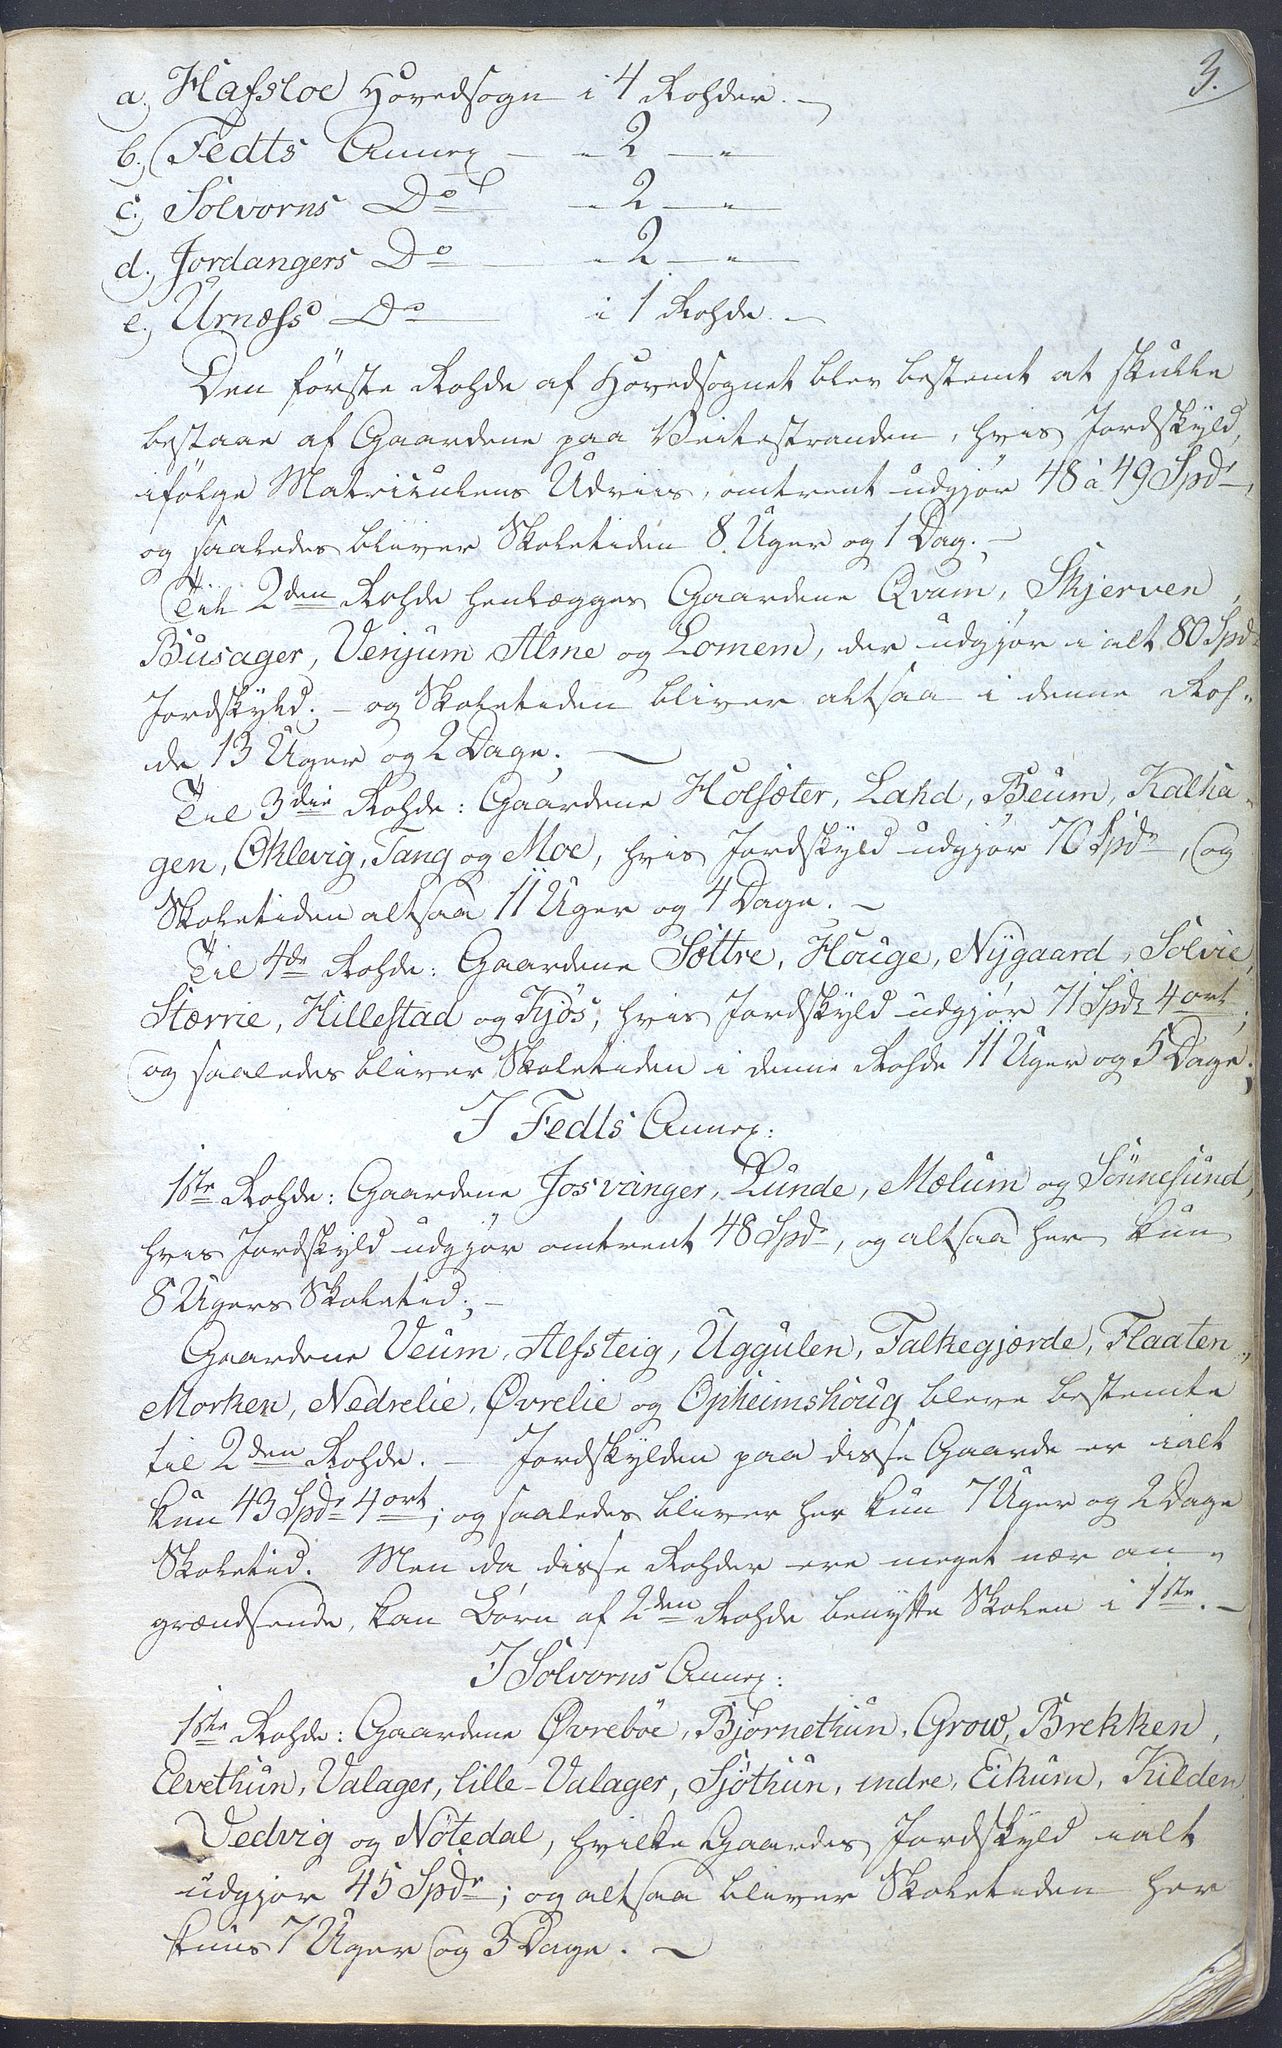 3.
a., Hafsloe Hovedsogn i 4 Rohder. —
b., Fedts Annex — „ 2 — „
c., Solvorns Do — „ 2 — „
d., Jordangers Do — „ 2 — „
e., Urnæss Do — i 1 Rohde. —
Den første Rohde af Hovedsognet blev bestemt at skulle
bestaae af Gaardene paa Veitestranden, hvis Jordskyld,
ifølge Matriculens Udviis, omtrent udgjør 48 à 49 Spdr,
og saaledes bliver Skoletiden 8 Uger og 1 Dag. —
Til 2den Rohde henlægges Gaardene Qvam, Skjerven,
Busager, Venjum Alme og Lomem, der udgjør i alt 80 Spdr
Jordskyld; — og Skoletiden bliver altsaa i denne Roh-
de 13 Uger og 2 Dage. —
Til 3die Rohde: Gaardene Holsæter, Lahd, Beum, Kalha-
gen, Oklevig, Tang og Moe, hvis Jordskyld udgjør 70 Spdr, og
Skoletiden altsaa 11 Uger og 4 Dage. —
Til 4de Rohde: Gaardene Sættre, Houge, Nygaard, Solvie,
Stærrie, Hillestad og Kjøs, hvis Jordskyld udgjør 71 Spdr 4 ort;
og saaledes bliver Skoletiden i denne Rohde 11 Uger og 5 Dage;
I Fedts Annex:
1ste Rohde: Gaardene Josvanger, Lunde, Mælum og Sønnesund,
hvis Jordskyld udgjør omtrent 48 Spdr, og altsaa her kun
8 Ugers Skoletid; —
Gaardene Veum, Alfsteig, Uggulen, Falkegjærde, Flaaten,
Morken, Nedrelie, Øvrelie og Opheimshoug bleve bestemte
til 2den Rohde. — Jordskylden paa disse Gaarde er ialt
kun 43 Spdr 4 ort; og saaledes bliver her kun 7 Uger og 2 Dage
Skoletid. Men da disse Rohder ere meget nær an-
grændsende, kan Børn af 2den Rohde benytte Skolen i 1ste. —
I Solvorns Annex:
1ste Rohde: Gaardene Øvrebøe, Bjørnethun, Grow, Brekken,
Elvethun, Valager, lille-Valager, Sjøthun, indre, Eikum, Kilden,
Vedvig og Nøtedal, hvilke Gaardes Jordskyld ialt
udgjør 45 Spdr; og altsaa bliver Skoletiden her
kuns 7 Uger og 3 Dage. —